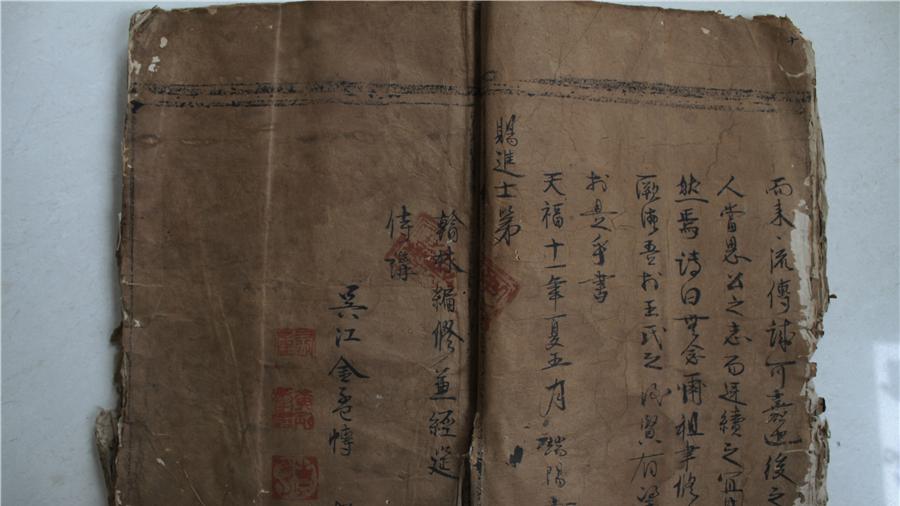 而来流傳誠可嘉迨後之
人當思公之志而迓續之宜
然焉詩曰無念爾祖聿修
厥德吾於王氏之後賢有望
於是乎書
天福十一年夏五月端陽
賜進士第
翰林編修兼經筵
侍講
吳江金